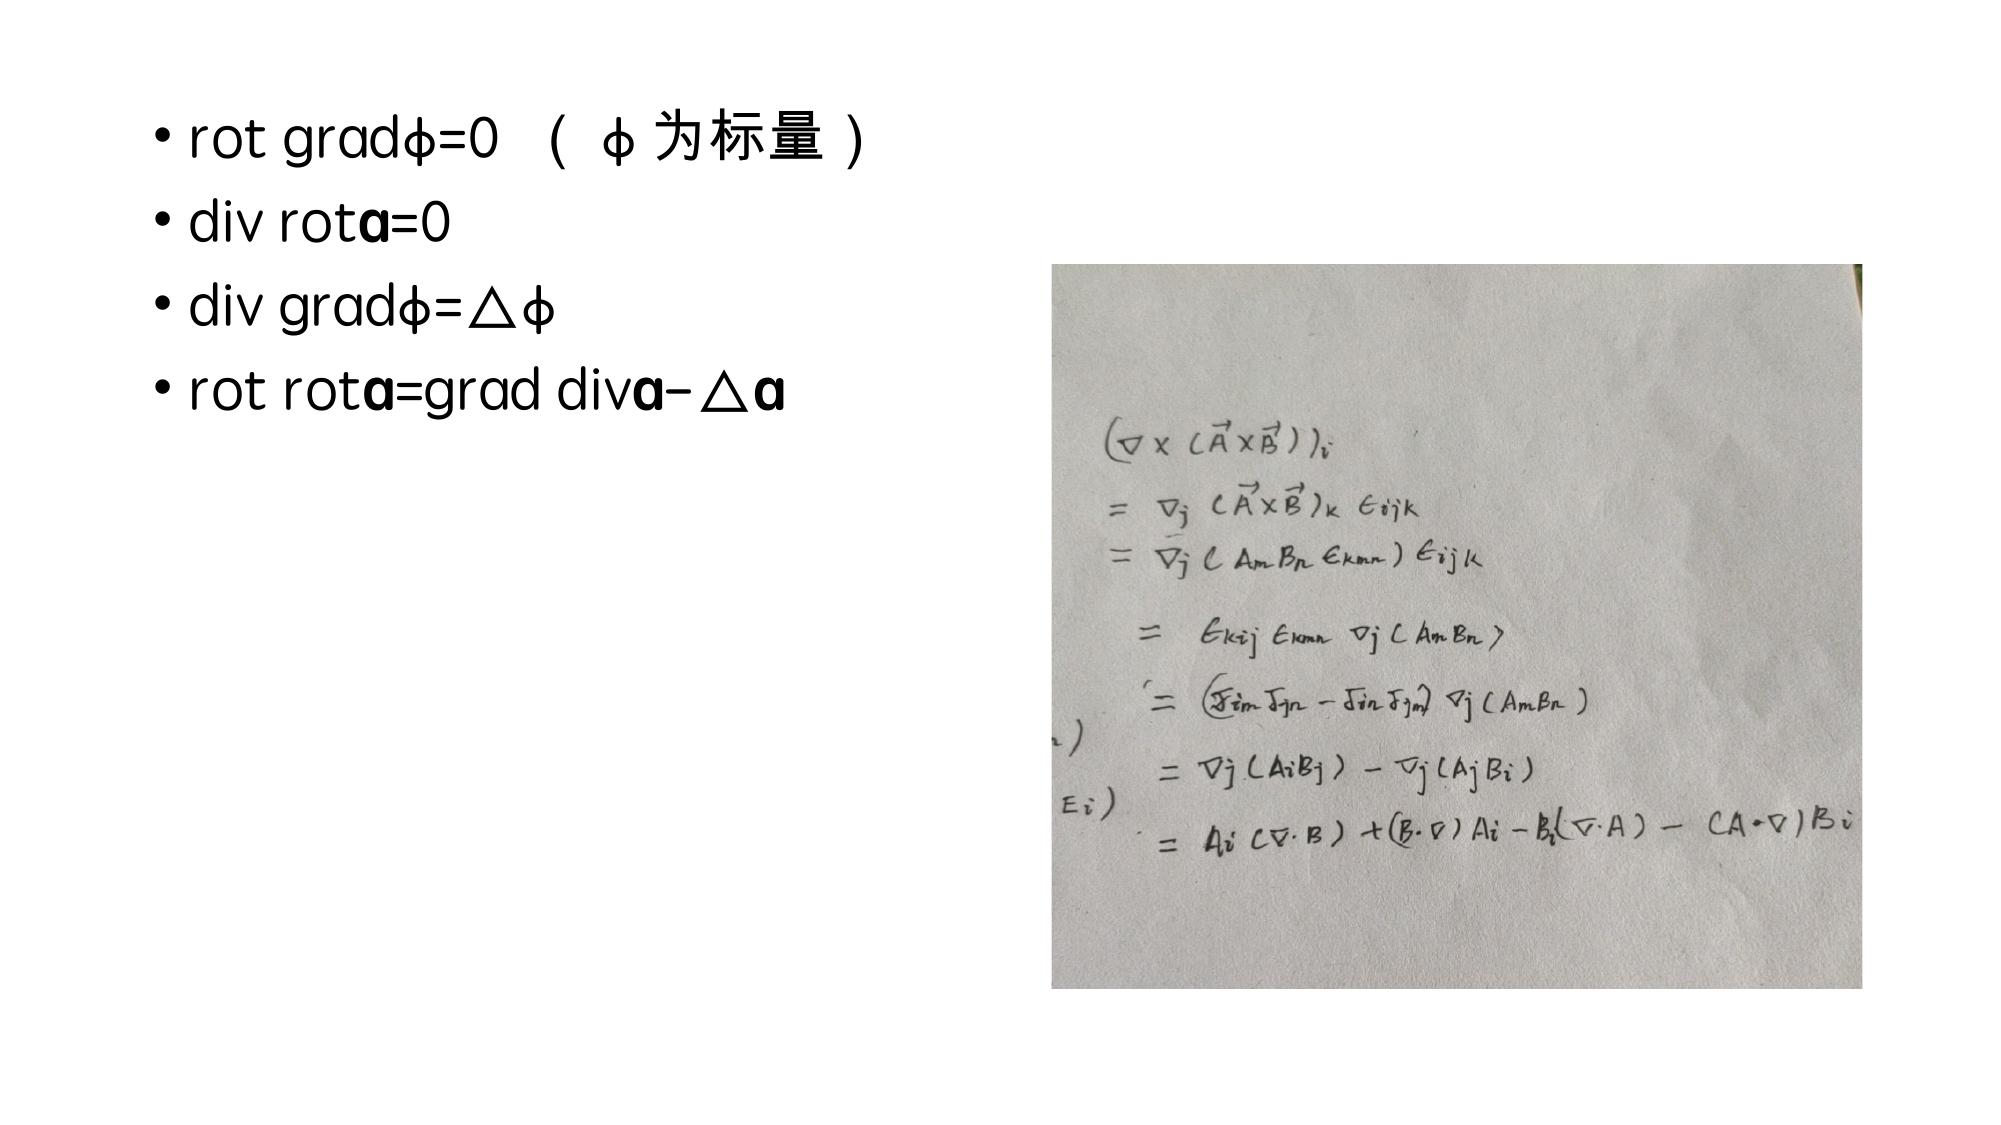 • rot gradφ=0 （ φ 为标量）
• div rota=0
• div gradφ=△φ
• rot rota=grad diva-△a
(∇ × (A⃗×B⃗))i
= ∇j (A⃗×B⃗)k ϵijk
= ∇j ( AmBn ϵkmn ) ϵijk
= ϵkij ϵkmn ∇j ( AmBn )
= (δim δjn - δin δjm) ∇j ( AmBn )
= ∇j (AiBj) - ∇j (AjBi)
= Ai (∇·B) + (B·∇) Ai - Bi(∇·A) - (A·∇) Bi
)
Ei)